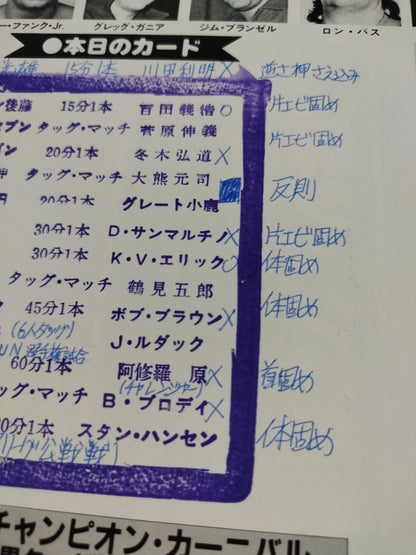 ・ファンクJr.　グレッグ・ガニア　ジム・ブランゼル　ロン・バス
●本日のカード
雄　15分1本　川田利明×　逆さ押さえ込み
後藤　15分1本　百田義浩○　片エビ固め
セブン　タッグ・マッチ　菅原伸義　片エビ固め
イン　20分1本　冬木弘道×
タッグ・マッチ　大熊元司　反則
20分1本　グレート小鹿
30分1本　D・サンマルチノ×　片エビ固め
30分1本　K・V・エリック○　体固め
タッグ・マッチ　鶴見五郎
45分1本　ボブ・ブラウン×　体固め
(6人タッグ)　J・ルダック
UN選手権試合
60分1本　阿修羅　原×　首固め
(チャレンジャー)
ッグ・マッチ　B・ブロディ×
0分1本　スタン・ハンセン　体固め
リーグ公式戦)
チャンピオン・カーニバル